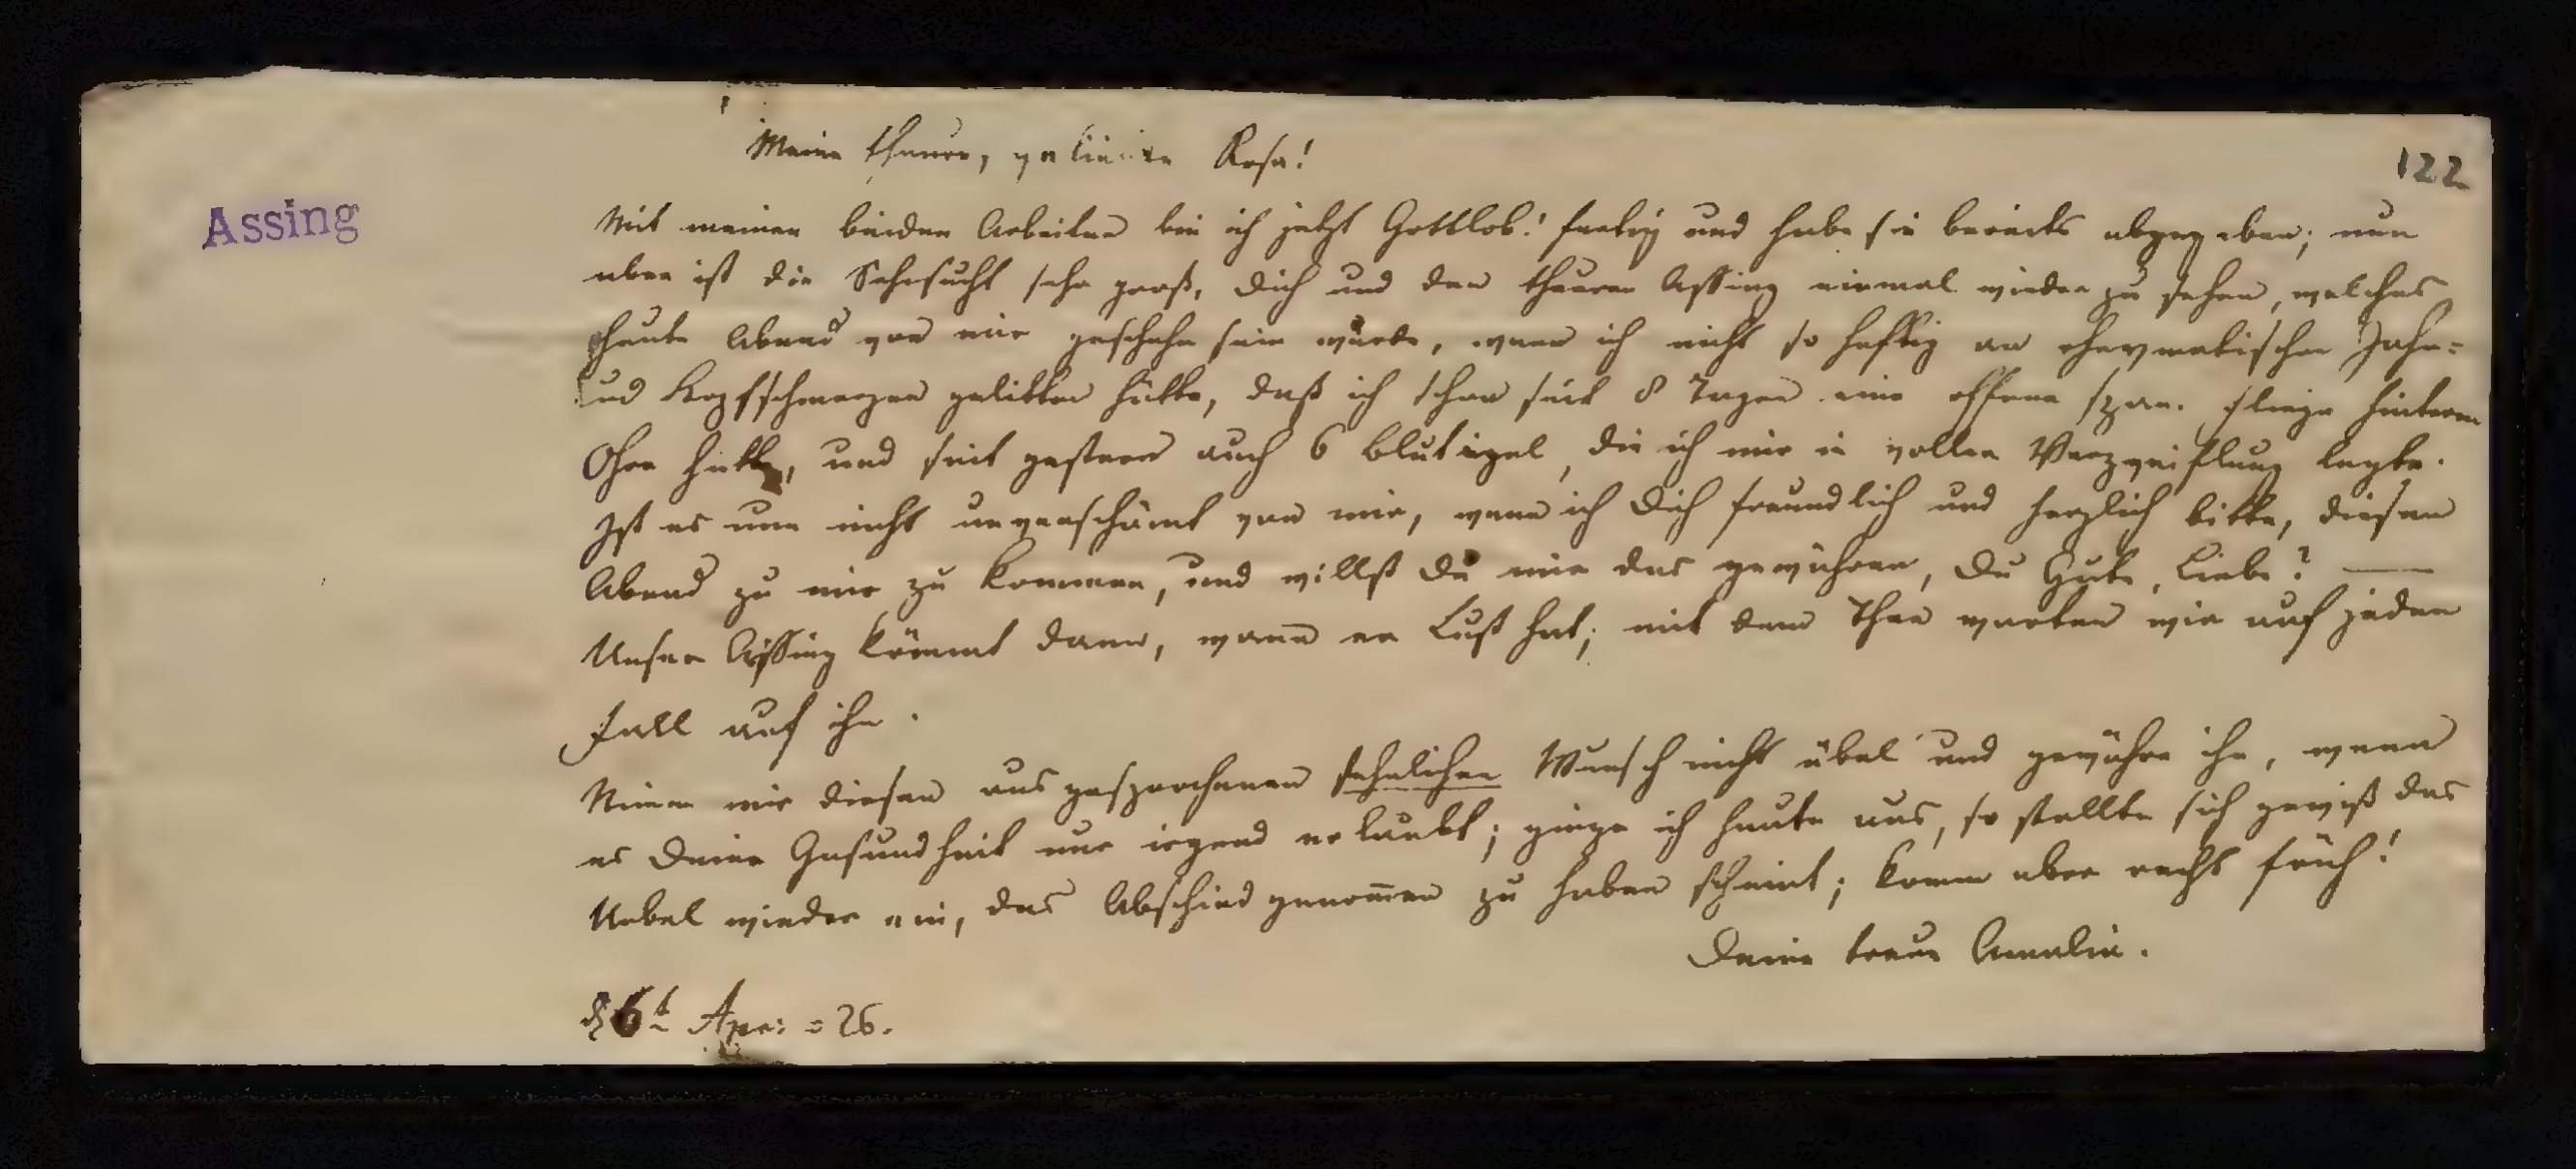 Meine theure, geliebte Rosa!
122
Assing
Mit meinen beiden Arbeiten bin ich jetzt Gottlob! fertig und habe sie bereits abgegeben; nun
aber ist die Sehnsucht sehr groß, Dich und den theuren Assing einmal wieder zu sehen, welches
heute Abend von mir geschehn sein würde, wenn ich nicht so heftig an rheumatischen Zahn-
und Kopfschmerzen gelitten hätte, daß ich schon seit 8 Tagen eine offene span. Fliege hinterm
Ohre hatte, und seit gestern auch 6 Blutigel, die ich mir in voller Verzweiflung legte.
Ist es nun nicht unverschämt von mir, wenn ich Dich freundlich und herzlich bitte, diesen
Abend zu mir zu kommen, und willst Du mir das gewähren, Du Gute, Liebe? —
Unser Assing kömmt dann, wann er Lust hat; mit dem Thee warten wir auf jeden
Fall auf ihn.
Nimm mir diesen ausgesprochenen sehnlichen Wunsch nicht übel und gewähre ihn, wenn
es Deine Gesundheit nur irgend erlaubt; ginge ich heute aus, so stellte sich gewiß das
Uebel wieder ein, das Abschied genom̄en zu haben scheint; komm aber recht früh!
Deine treue Amalia.
6t Apr: = 26.